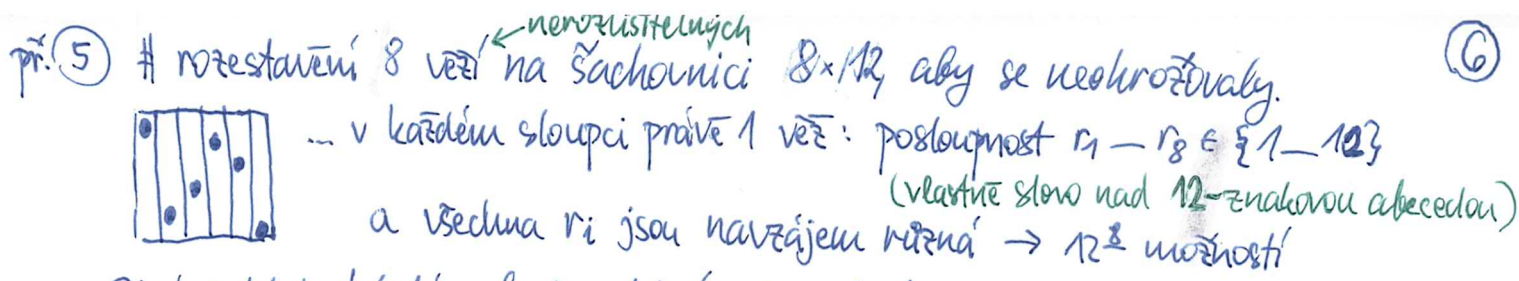 nerozlišitelných
př. 5 # rozestavění 8 věží na šachovnici 8×12, aby se neohrožovaly. 6
... v každém sloupci právě 1 věž: posloupnost r₁ — r₈ ∈ {1 — 12}
(vlastně slovo nad 12-znakovou abecedou)
a všechna rᵢ jsou navzájem různá → 12⁸ možností